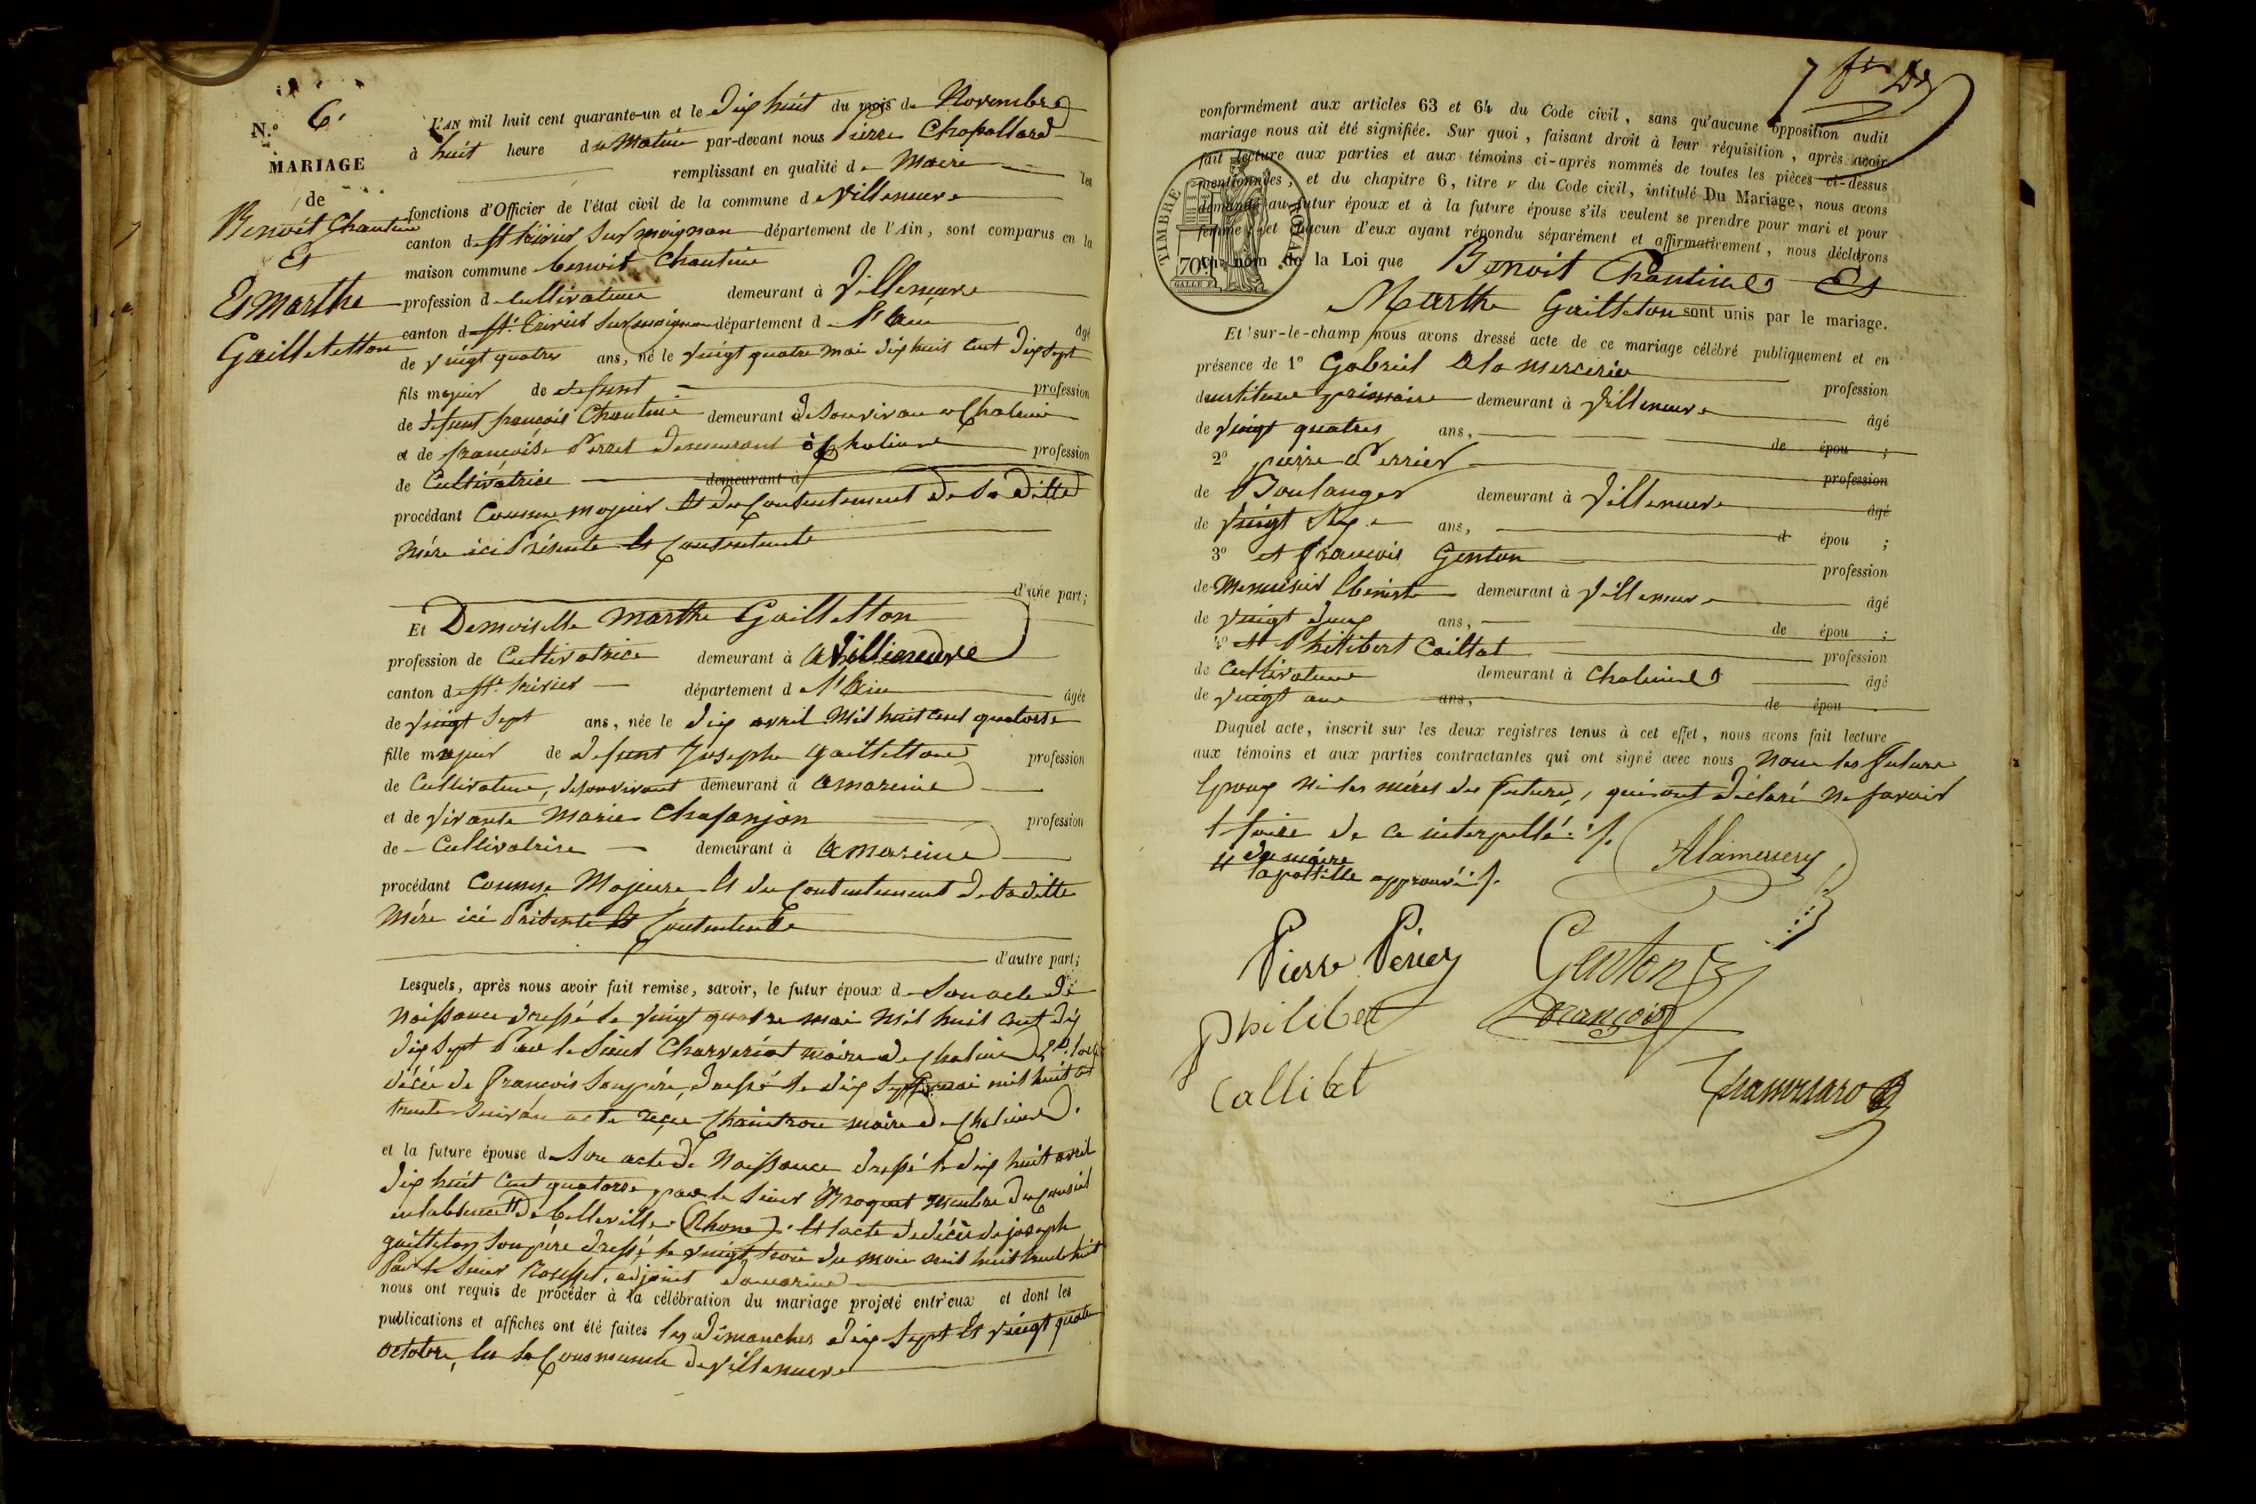 N.º 6.
MARIAGE
de
Benoit Chantin
Et
Et Marthe
Gailleletton
L'AN mil huit cent quarante-un et le Dix huit du mois de Novembre
à huit heure du Matin par-devant nous Pierre Chapolard
remplissant en qualité de Maire les
fonctions d'Officier de l'état civil de la commune de Villeneuve
canton de St Trivier Sur moignan département de l'Ain, sont comparus en la
maison commune benoit Chantin
profession de Cultivateur demeurant à Villeneuve
canton de St. Trivier Sur moignan département de l'ain âgé
de vingt quatre ans, né le vingt quatre mai dix huit cent dix sept
fils majeur de defunt profession
de defunt françois Chantin demeurant de Son vivant a Chalein
et de françoise Perret demeurant à Chaleins profession
de Cultivatrice demeurant à
procédant comme majeur Et du Contentement de Sa ditte
mère ici Présente Et Contentente
d'une part;
Et Demoiselle Marthe Gailletton
profession de Cultivatrice demeurant à a Villeneuve
canton de St. trivier département d l'ain âgée
de vingt Sept ans, née le dix avril Mil huit cent quatorse
fille majeur de defunt Joseph Gailletton profession
de Cultivateur, deson vivant demeurant à amareins
et de vivante Marie Chafanjon profession
de Cultivatrise demeurant à amareins
procédant Comme Majeure Et du Contentement de Saditte
Mère ici Présente Et Contentente
d'autre part;
Lesquels, après nous avoir fait remise, savoir, le futur époux de Son acte de
Naissance dressé le vingt quatre mai Mil huit cent dix
dix Sept Par le Sieur Charveriat maire de Chaleins
décée de François Son père, dressé le dix Sept mai mil huit cent
trente Suivan acte reçu Chaintron maire de Chaleins.
et la future épouse de Son acte de Naissance dressé le dix huit avril
dix huit Cent quatorse par le Sieur Braquet membre du Conseil
en labsence de belleville (Rhone). Et lacte de décée de joseph
gailleton Son père dressé le vingt trois du mois mil huit trente huit
Par le Sieur Rousset, adjoint damarins
nous ont requis de procéder à la célébration du mariage projeté entr'eux et dont les
publications et affiches ont été faites les dimanches dix Sept Et vingt quatre
octobre, En la Commune de Villeneuve
conformément aux articles 63 et 64 du Code civil, sans qu'aucune opposition audit
mariage nous ait été signifiée. Sur quoi, faisant droit à leur réquisition, après avoir
fait lecture aux parties et aux témoins ci-après nommés de toutes les pièces ci-dessus
mentionnées, et du chapitre 6, titre v du Code civil, intitulé Du Mariage, nous avons
demandé au futur époux et à la future épouse s'ils veulent se prendre pour mari et pour
femme; et chacun d'eux ayant répondu séparément et affirmativement, nous déclarons
au nom de la Loi que Benoit Chantin Et
Marthe Gailleton sont unis par le mariage.
TIMBRE ROYAL
70
Et sur-le-champ nous avons dressé acte de ce mariage célébré publiquement et en
présence de 1º Gabriel Alamercerie profession
dinstituteur primaire demeurant à Villeneuve âgé
de Vingt quatres ans, de épou ;
2º pierre Perrier profession
de Boulanger demeurant à Villeneuve âgé
de Vingt Six ans, d épou ;
3º et François Genton profession
de Menuisier Ebeniste demeurant à Villeneuve âgé
de Vingt deux ans, de épou ;
4º Et Philibert Caillat profession
de Cultivateur demeurant à Chaleins âgé
de Vingt ans de épou
Duquel acte, inscrit sur les deux registres tenus à cet effet, nous avons fait lecture
aux témoins et aux parties contractantes qui ont signé avec nous Non les future
Epoux Ni les mères des futures, qui ont déclaré Ne Savoir
faire de ce interpellé ./.
du maire
lapostille approuvée ./.
Alamersery
Pierre Périer
Genton
françois
philibet
Callibet